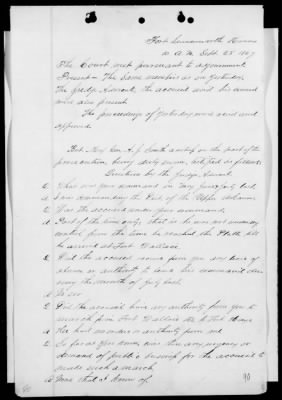 Fort Leavenworth Kansas
10 A.M. Sept. 25 1867
The Court met pursuant to adjournment
Present - The same members as on yesterday
The Judge Advocate, the accused and his counsel
were also present
The proceedings of yesterday were read and
approved.
Bvt. Maj. Gen. A. J. Smith a witness on the part of the
prosecution, being duly sworn, testified as follows:
Question by the Judge Advocate.
Q What was your command in July last
A I was commanding the Dist. of the Upper Arkansas.
Q Was the accused under your command
A Part of the time only, that is he was not
from the time he reached the Platte till
he arrived at Fort Wallace.
Q Did the accused receive from you any leave of
absence or authority to leave his command
during the month of July last
A No Sir
Q Did the accused have any authority from you to
march from Fort Wallace to Fort Hays
A He had no orders or authority from me
Q So far as you know was there any urgency or
demand of public service for the accused to
make such a march
A None that I know of
90